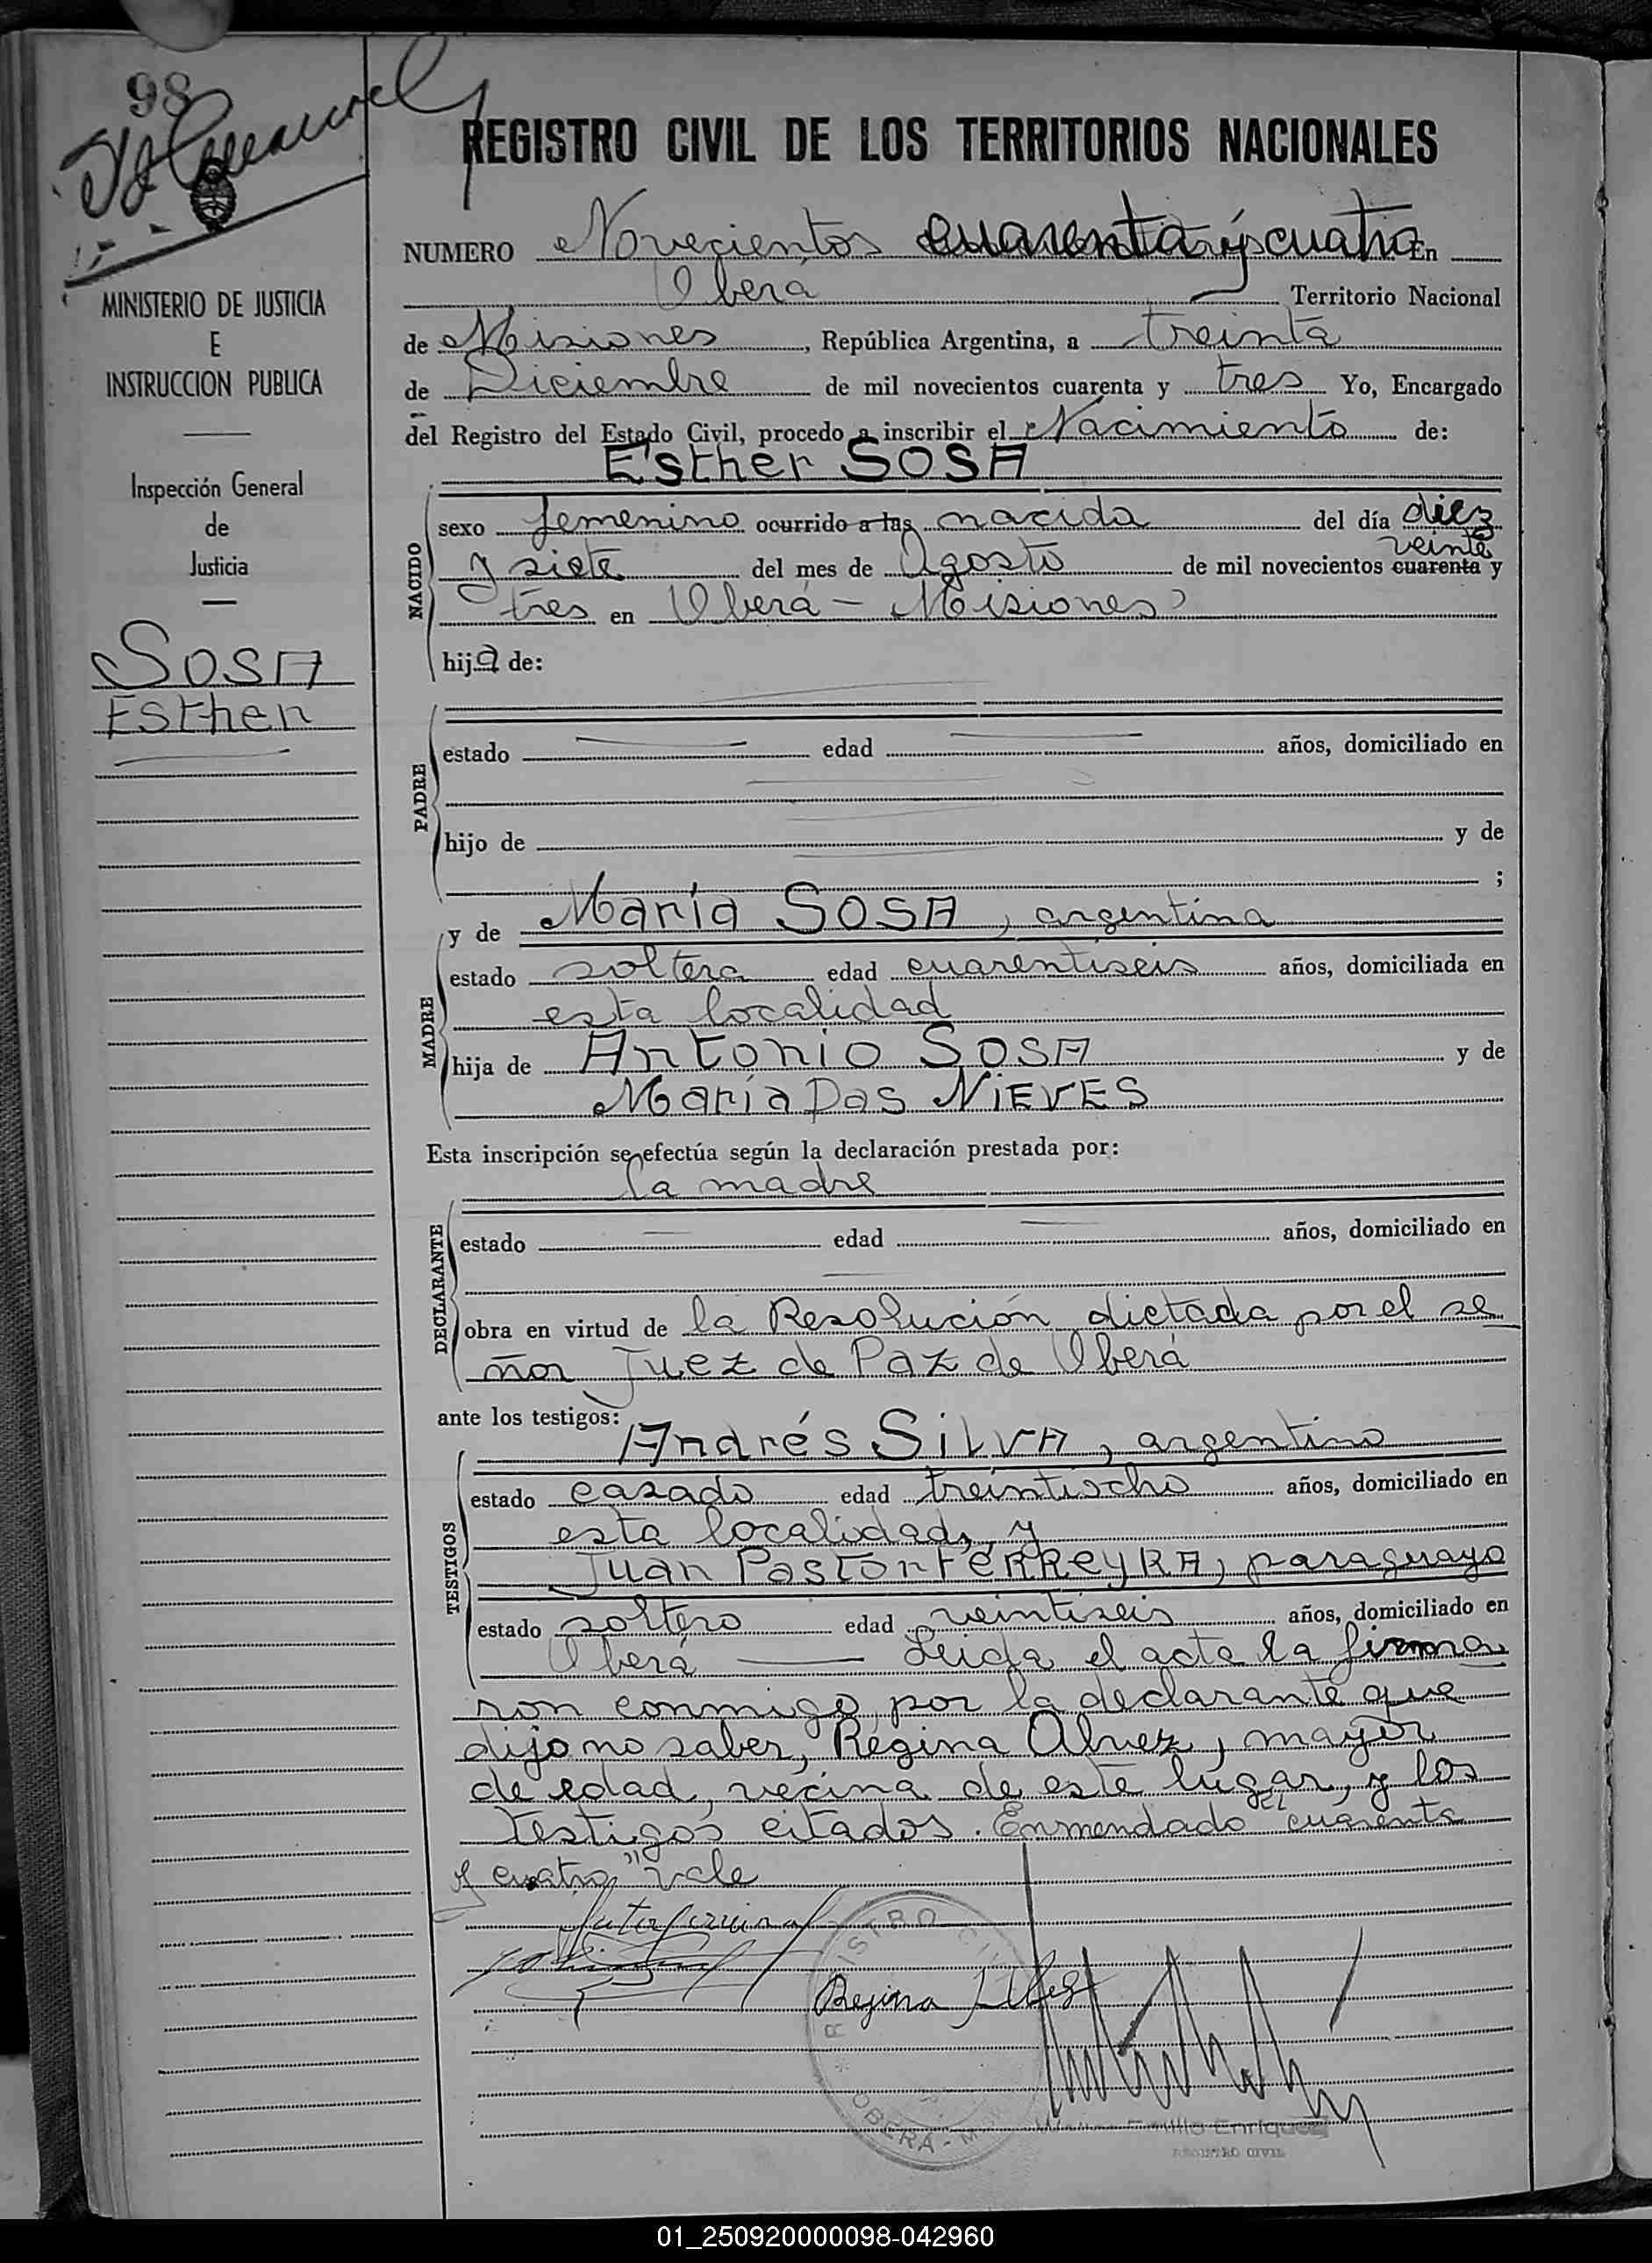 98
REGISTRO CIVIL DE LOS TERRITORIOS NACIONALES
MINISTERIO DE JUSTICIA
E
INSTRUCCION PUBLICA
Inspección General
de
Justicia
SOSA
Esther
NUMERO Novecientos cuarenta y cuatro En
Oberá Territorio Nacional
de Misiones, República Argentina, a treinta
de Diciembre de mil novecientos cuarenta y tres Yo, Encargado
del Registro del Estado Civil, procedo a inscribir el Nacimiento de:
Esther SOSA
NACIDO
sexo femenino ocurrido a las nacida del día diez
veinte
y siete del mes de Agosto de mil novecientos cuarenta y
tres en Oberá - Misiones
hija de:
PADRE
estado edad años, domiciliado en
hijo de y de
;
MADRE
y de María SOSA, argentina
estado soltera edad cuarentiseis años, domiciliada en
esta localidad
hija de Antonio SOSA y de
María Das NIEVES
Esta inscripción se efectúa según la declaración prestada por:
la madre
DECLARANTE
estado edad años, domiciliado en
obra en virtud de la Resolución dictada por el se
ñor Juez de Paz de Oberá
ante los testigos:
TESTIGOS
Andrés SILVA, argentino
estado casado edad treintiocho años, domiciliado en
esta localidad, y
Juan Pastor FERREYRA, paraguayo
estado soltero edad veintiseis años, domiciliado en
Oberá — Leida el acta la firma
ron conmigo, por la declarante que
dijo no saber, Regina Alvez, mayor
de edad, vecina de este lugar, y los
testigos citados. Enmendado "cuarenta
y cuatro" vale
Regina
REGISTRO CIVIL
OBERÁ
Emilio Enriquez
REGISTRO CIVIL
01_250920000098-042960